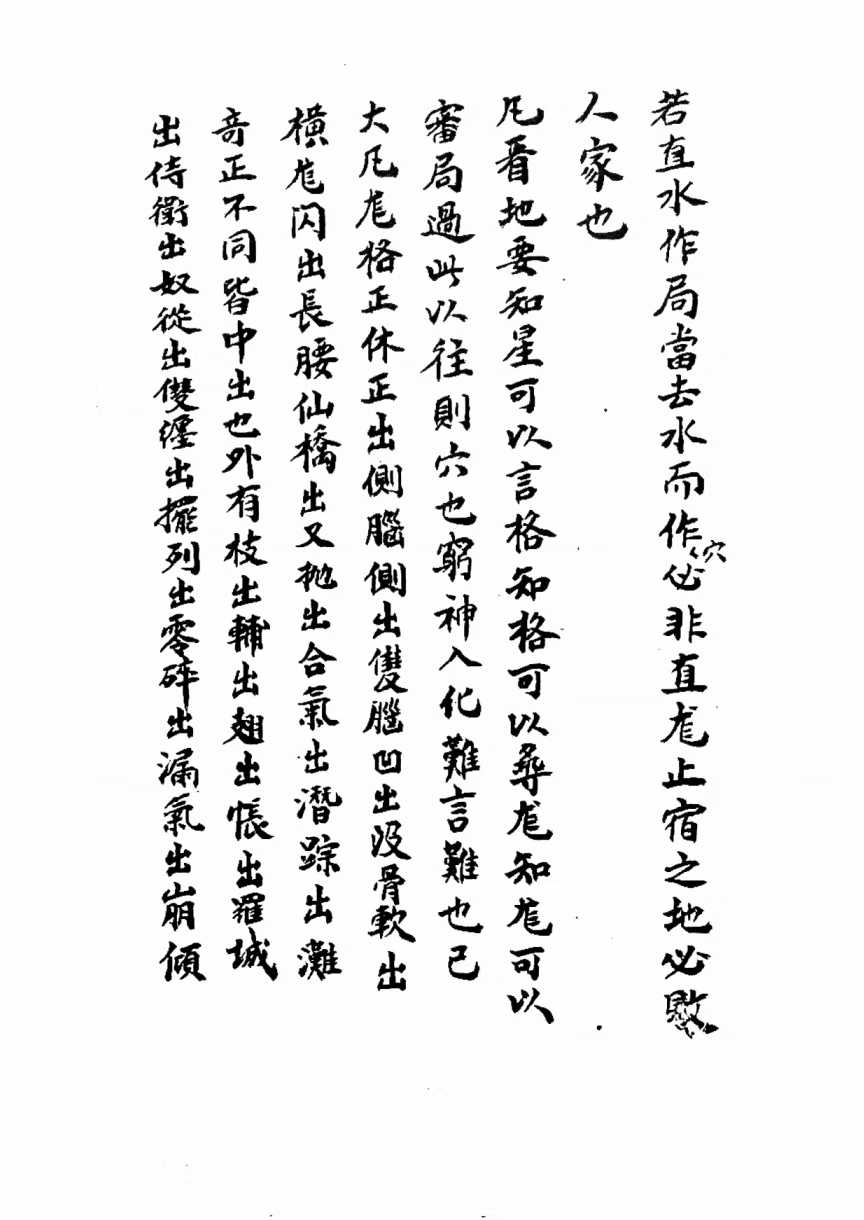 若直水作局當去水而作穴必非直龙止宿之地必敗
人家也
凡看地要知星可以言格知格可以尋龙知龙可以
審局過此以往則穴也窮神入化難言難也已
大凡龙格正体正出側腦側出雙腦凹出没骨軟出
橫龙閃出長腰仙橋出又抛出合氣出潛踪出灘
奇正不同皆中出也外有枝出輔出翅出帳出羅城
出侍衛出奴從出雙纏出擺列出零碎出漏氣出崩傾